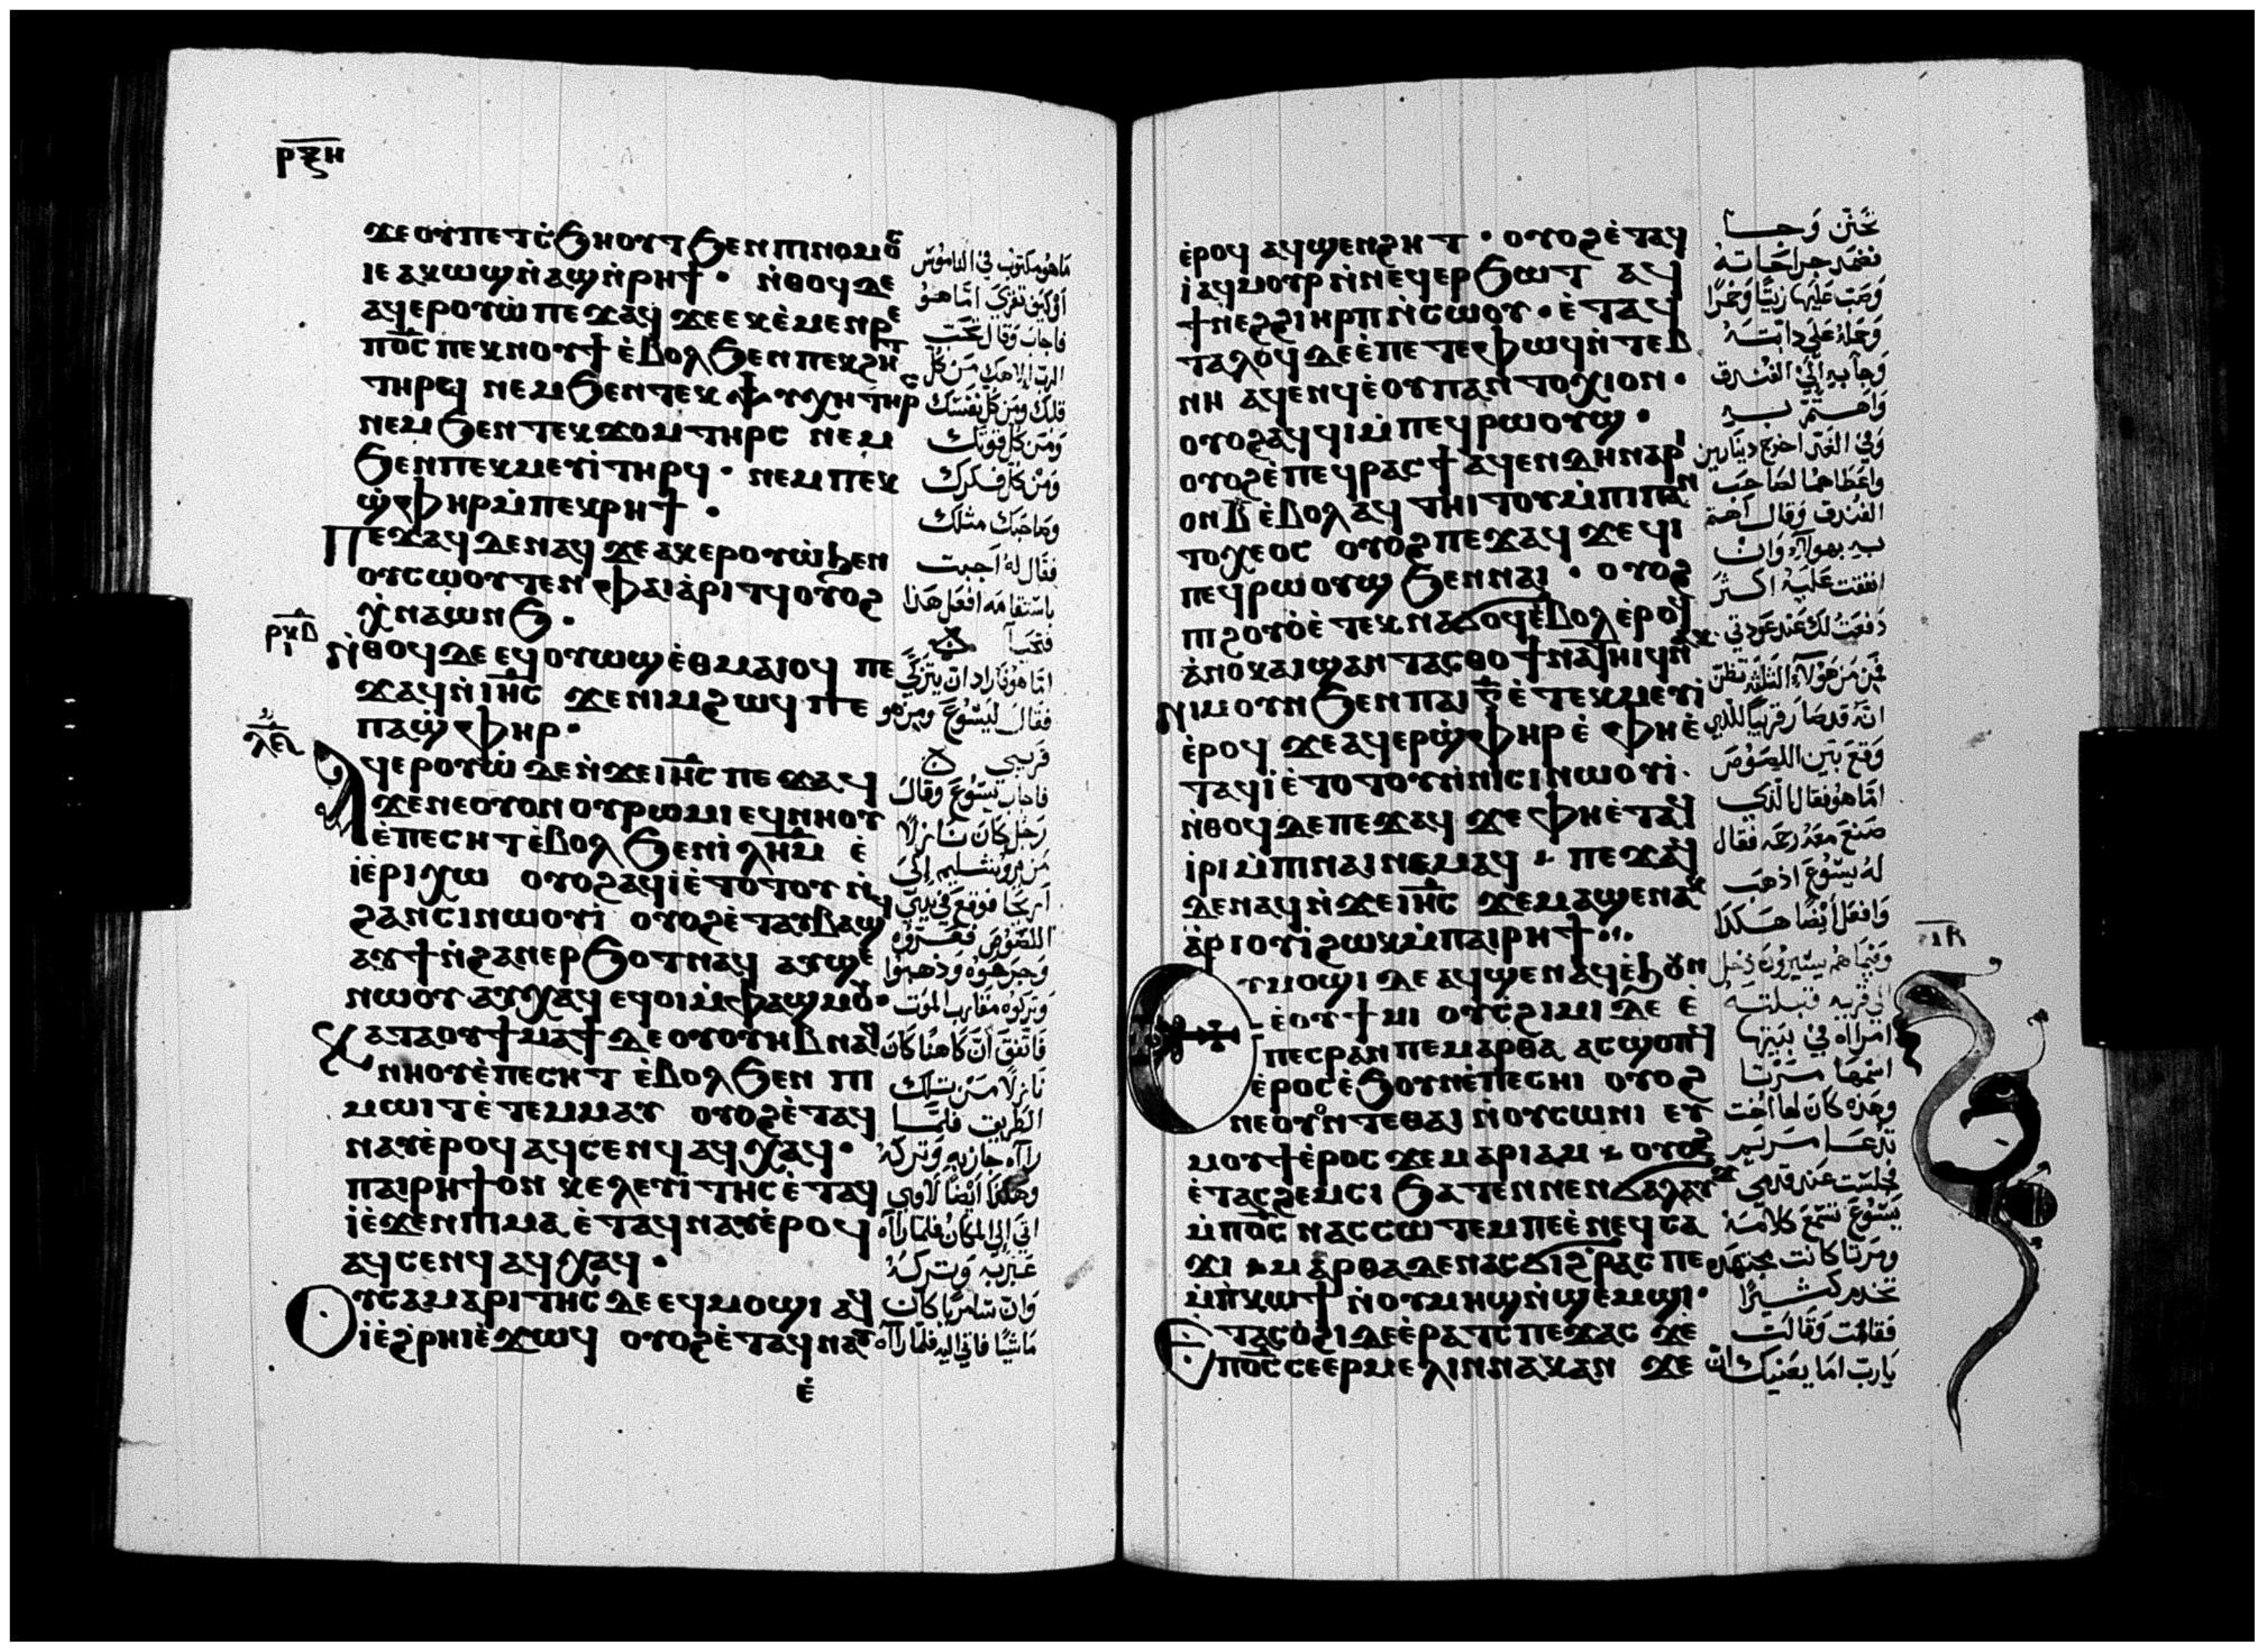 ⲣⲝⲏ
ϫⲉⲟⲩⲡⲉⲧⲥ̇ϧⲏⲟⲩⲧϧⲉⲛⲡⲓⲛⲟⲙⲟⲥ
ⲓⲉ ⲁⲕⲱϣⲛ̀ⲁϣⲛ̀ⲣⲏϯ · ⲛ̀ⲑⲟϥⲇⲉ
ⲁϥⲉⲣⲟⲩⲱ̀ ⲡⲉϫⲁϥ ϫⲉⲉⲕⲉ̀ⲙⲉⲛⲣⲉ
ⲡϭⲥ ⲡⲉⲕⲛⲟⲩϯ ⲉ̀ⲃⲟⲗϧⲉⲛⲡⲉⲕϩⲏⲧ
ⲧⲏⲣϥ ⲛⲉⲙϧⲉⲛⲧⲉⲕⲯⲩⲭⲏⲧⲏⲣⲥ
ⲛⲉⲙϧⲉⲛ ⲧⲉⲕϫⲟⲙⲧⲏⲣⲥ ⲛⲉⲙ
ϧⲉⲛⲡⲉⲕⲙⲉⲩⲓ̀ⲧⲏⲣϥ · ⲛⲉⲙⲡⲉⲕ
ϣ̀ⲫⲏⲣⲙ̀ⲡⲉⲕⲣⲏϯ ·
ⲡⲉϫⲁϥⲇⲉⲛⲁϥϫⲉⲁⲕⲉⲣⲟⲩⲱ̀ϧⲉⲛ
ⲟⲩⲥⲱⲟⲩⲧⲉⲛ ⲫⲁⲓⲁ̀ⲣⲓⲧϥⲟⲩⲟϩ
ⲭ̀ⲛⲁⲱⲛϧ ·
ⲛ̀ⲑⲟϥⲇⲉⲉϥⲟⲩⲱϣⲉ̀ⲑⲙⲁⲓⲟϥ ⲡⲉ
ϫⲁϥⲛ̀ⲓⲏⲥ ϫⲉⲛⲓⲙϩⲱϥ ⲡⲉ
ⲡⲁϣ̀ⲫⲏⲣ ·
ⲁϥⲉⲣⲟⲩⲱ̀ ⲇⲉⲛ̀ϫⲉⲓⲏⲥ ⲡⲉϫⲁϥ
ϫⲉⲛⲉⲟⲩⲟⲛ ⲟⲩⲣⲱⲙⲓ ⲉϥⲛⲏⲟⲩ
ⲉ̀ⲡⲉⲥⲏⲧⲉ̀ⲃⲟⲗϧⲉⲛⲓ̀ⲗⲏⲙ ⲉ̀
ⲓⲉ̀ⲣⲓⲭⲱ ⲟⲩⲟϩⲁϥⲓ̀ⲉ̀ⲧⲟⲧⲟⲩ ⲛ̀
ϩⲁⲛⲥⲓⲛⲱⲟⲩⲓ̀ ⲟⲩⲟϩⲉ̀ⲧⲁⲩⲃⲁϣϥ
ⲁⲩϯⲛ̀ϩⲁⲛⲉⲣϧⲟⲧⲛⲁϥ ⲁⲩϣⲉ
ⲛⲱⲟⲩ ⲁⲩⲭⲁϥ ⲉϥⲟⲓⲙ̀ⲫⲁϣⲙⲟⲩ ·
ⲕⲁⲧⲁⲟⲩϯⲙⲁϯ ⲇⲉ ⲟⲩⲟⲩⲏⲃ ⲛⲁϥ
ⲛⲏⲟⲩⲉ̀ⲡⲉⲥⲏⲧ ⲉ̀ⲃⲟⲗϧⲉⲛ ⲡⲓ
ⲙⲱⲓⲧⲉ̀ⲧⲉⲙⲙⲁⲩ ⲟⲩⲟϩⲉ̀ⲧⲁϥ
ⲛⲁⲩⲉ̀ⲣⲟϥ ⲁϥⲥⲉⲛϥ ⲁϥⲭⲁϥ ·
ⲡⲁⲓⲣⲏϯⲟⲛ ⲕⲉⲗⲉⲩⲓ̀ⲧⲏⲥⲉ̀ⲧⲁϥ
ⲓ̀ⲉ̀ϫⲉⲛⲡⲓⲙⲁ ⲉ̀ⲧⲁϥⲛⲁⲩⲉ̀ⲣⲟϥ
ⲁϥⲥⲉⲛϥ ⲁϥⲭⲁϥ ·
ⲟⲩⲥⲁⲙⲁⲣⲓⲧⲏⲥ ⲇⲉ ⲉϥⲙⲟϣⲓ ⲁϥ
ⲓ̀ⲉ̀ϩ̀ⲣⲏⲓⲉ̀ϫⲱϥ ⲟⲩⲟϩⲉ̀ⲧⲁϥⲛⲁⲩ
ⲉ̀
ما هو مكتوب في الناموس
او كيف تقري اما هو
فاجاب وقال تحب
الرب الاهك من كل
قلبك ومن كل نفسك
ومن كل قوتك
ومن كل فكرك
وصاحبك مثلك
فقال له اجبت
باستقامه افعل هذا
فتحيا
اما هو فاراد ان يتزكي
فقال ليسوع ومن هو
قريبي
فاجاب يسوع وقال
رجل كان نازلا
من يروشليم الى
اريحا فوقع في يدي
اللصوص فعروه
وجرحوه وذهبوا
وتركوه مقارب الموت
فاتفق ان كاهنا كان
نازلا من تلك
الطريق فلما
راآه جاز به وتركه
وهكذا ايضا لاوي
اتى الى المكان فلما راآه
عبر به وتركه
وان سامريا كان
ماشيا فاتي اليه فلما راآه
ⲉ̀ⲣⲟϥ ⲁϥϣⲉⲛϩⲏⲧ · ⲟⲩⲟϩⲉ̀ⲧⲁϥ
ⲓ̀ ⲁϥⲙⲟⲩⲣ ⲛ̀ⲛⲉϥⲉⲣϧⲱⲧ ⲁϥ
ϯⲛⲉϩϩⲓⲏⲣⲡⲛ̀ⲥⲱⲟⲩ · ⲉ̀ⲧⲁϥ
ⲧⲁⲗⲟϥ ⲇⲉⲉ̀ⲡⲉⲧⲉⲫⲱϥⲛ̀ⲧⲉⲃ
ⲛⲏ ⲁϥⲉⲛϥⲉ̀ⲟⲩⲡⲁⲛⲧⲟⲭⲓⲟⲛ ·
ⲟⲩⲟϩⲁϥϥⲓⲙ̀ⲡⲉϥⲣⲱⲟⲩϣ ·
ⲟⲩⲟϩⲉ̀ⲡⲉϥⲣⲁⲥϯ ⲁϥⲉⲛⲇⲏⲛⲁⲣⲓ
ⲟⲛ ⲃ̅ ⲉ̀ⲃⲟⲗⲁϥⲧⲏⲓⲧⲟⲩⲙ̀ⲡⲓⲡⲁⲛ
ⲧⲟⲭⲉⲟⲥ ⲟⲩⲟϩⲡⲉϫⲁϥ ϫⲉϥⲓ
ⲡⲉϥⲣⲱⲟⲩϣ ϧⲉⲛⲛⲁⲓ · ⲟⲩⲟϩ
ⲡⲓϩⲟⲩⲟ̀ⲉ̀ⲧⲉⲕⲛⲁϭⲟϥⲉ̀ⲃⲟⲗⲉ̀ⲣⲟϥ
ⲁⲛⲟⲕⲁⲓϣⲁⲛⲧⲁⲥⲑⲟ ϯⲛⲁⲧⲏⲓϥⲛⲁⲕ
ⲛⲓⲙⲟⲩⲛϧⲉⲛⲡⲁⲓ ⲅ̅ ⲉ̀ⲧⲉⲕⲙⲉⲩⲓ̀
ⲉ̀ⲣⲟϥ ϫⲉⲁϥⲉⲣϣ̀ⲫⲏⲣ ⲉ̀ⲫⲏⲉ̀
ⲧⲁϥⲓ̀ⲉ̀ⲧⲟⲧⲟⲩⲛ̀ⲛⲓⲥⲓⲛⲱⲟⲩⲓ̀ ·
ⲛ̀ⲑⲟϥⲇⲉⲡⲉϫⲁϥ ϫⲉ ⲫⲏⲉ̀ⲧⲁϥ
ⲓⲣⲓⲙ̀ⲡⲓⲛⲁⲓⲛⲉⲙⲁϥ · ⲡⲉϫⲁϥ
ⲇⲉⲛⲁϥⲛ̀ϫⲉⲓⲏⲥ ϫⲉⲙⲁϣⲉⲛⲁⲕ
ⲁ̀ⲣⲓⲟⲩⲓ̀ϩⲱⲕⲙ̀ⲡⲁⲓⲣⲏϯ ·
ⲉⲩⲙⲟϣⲓ ⲇⲉ ⲁϥϣⲉⲛⲁϥⲉ̀ϧⲟⲩⲛ
ⲉ̀ⲟⲩϯⲙⲓ ⲟⲩⲥ̀ϩⲓⲙⲓ ⲇⲉ ⲉ̀
ⲡⲉⲥⲣⲁⲛⲡⲉⲙⲁⲣⲑⲁ ⲁⲥϣⲟⲡϥ
ⲉ̀ⲣⲟⲥⲉ̀ϧⲟⲩⲛⲉ̀ⲡⲉⲥⲏⲓ ⲟⲩⲟϩ
ⲛⲉⲟⲩⲟⲛⲧⲉⲑⲁⲓ ⲛ̀ⲟⲩⲥⲱⲛⲓ ⲉⲩ
ⲙⲟⲩϯⲉ̀ⲣⲟⲥ ϫⲉⲙⲁⲣⲓⲁⲙ · ⲟⲩⲟϩ
ⲉ̀ⲧⲁⲥϩⲉⲙⲥⲓ ϧⲁⲧⲉⲛⲛⲉⲛϭⲁⲗⲁⲩϫ
ⲙ̀ⲡϭⲥ ⲛⲁⲥⲥⲱⲧⲉⲙⲡⲉⲉ̀ⲛⲉϥⲥⲁ
ϫⲓ ⲙⲁⲣⲑⲁⲇⲉⲛⲁⲥϭⲓϩ̀ⲣⲁⲥ ⲡⲉ
ⲙ̀ⲡ̀ⲕⲱϯ ⲛ̀ⲟⲩⲙⲏϣⲛ̀ϣⲉⲙϣⲓ ·
ⲉ̀ⲧⲁⲥⲟ̀ϩⲓⲇⲉⲉ̀ⲣⲁⲧⲥ ⲡⲉϫⲁⲥ ϫⲉ
ⲡϭⲥ ⲥⲉⲉⲣⲙⲉⲗⲓⲛⲛⲁⲕⲁⲛ ϫⲉ
تحنن وجا
فضمد جراحاته
وصب عليها زيتا وخمرا
وحمله على دابته
وجآ به الى الفندق
واهتم به
وفي الغد اخرج دينارين
واعطاهما لصاحب
الفندق وقال اهتم
به بهولاء وان
انفقت عليه اكثر
دفعت لك عند عودتي
فمن من هولآء الثلثه تظن
انه قد صار قريبا للذي
وقع بين اللصوص
اما هو فقال الذي
صنع معه رحمه فقال
له يسوع اذهب
وافعل ايضا هكذا
وفيما هم يسيرون دخل
الى قريه فقبلته
امراه في بيتها
اسمها مرتا
وهذه كان لها اخت
تدعا مريم
فجلست عند قدمي
يسوع تسمع كلامه
ومرتا كانت مجتهده
تخدم كثيرا
فقامت وقالت
يارب اما يعنيك ان